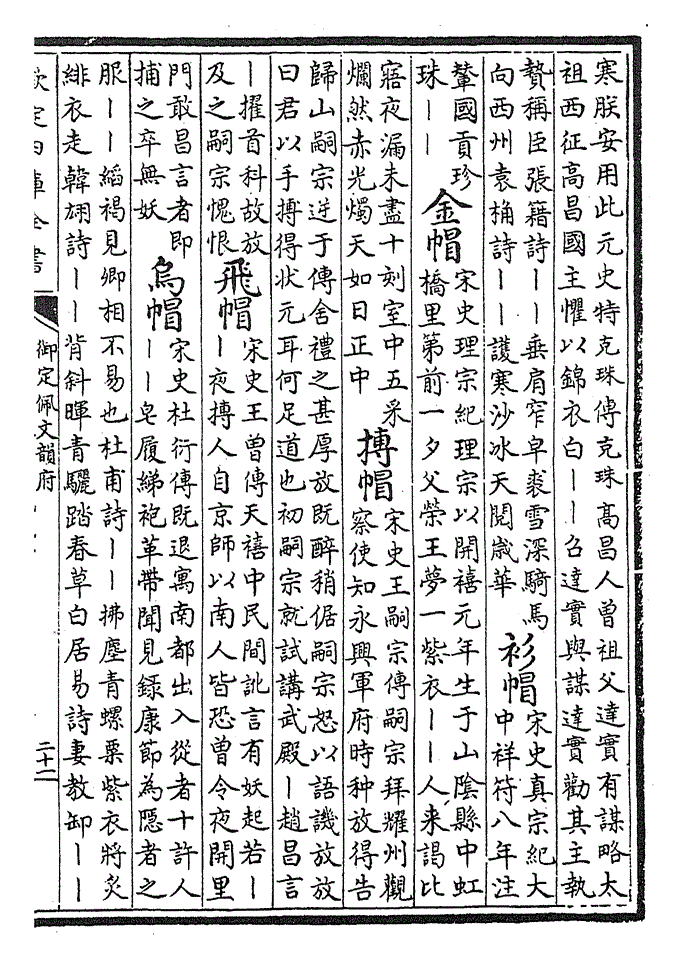 寒朕安用此元史特克珠傳克珠高昌人曾祖父達實有謀略太
祖西征高昌國主懼以錦衣白——召達實與謀達實勸其主執
贄稱臣張籍詩——垂肩窄皁裘雪深騎馬
向西州袁桷詩——護寒沙冰天閱歲華
衫帽
宋史真宗紀大
中祥符八年注
輦國貢珍
珠——
金帽
宋史理宗紀理宗以開禧元年生于山陰縣中虹
橋里第前一夕父榮王夢一紫衣——人来謁比
寤夜漏未盡十刻室中五采
爛然赤光燭天如日正中
搏帽
宋史王嗣宗傳嗣宗拜耀州觀
察使知永興軍府時种放得告
歸山嗣宗逆于傳舍禮之甚厚放既醉稍倨嗣宗怒以語譏放放
曰君以手搏得狀元耳何足道也初嗣宗就試講武殿—趙昌言
—擢首科故放
及之嗣宗愧恨
飛帽
宋史王曾傳天禧中民間訛言有妖起若—
—夜搏人自京師以南人皆恐曾令夜開里
門敢昌言者即
捕之卒無妖
烏帽
宋史杜衍傳既退寓南都出入從者十許人
——皂履綈袍革帶聞見録康節為隱者之
服——縚褐見卿相不易也杜甫詩——拂塵青螺粟紫衣將炙
緋衣走韓翃詩——背斜暉青驪踏春草白居易詩妻教卸——
欽定四庫全書
御定佩文韻府
二十二